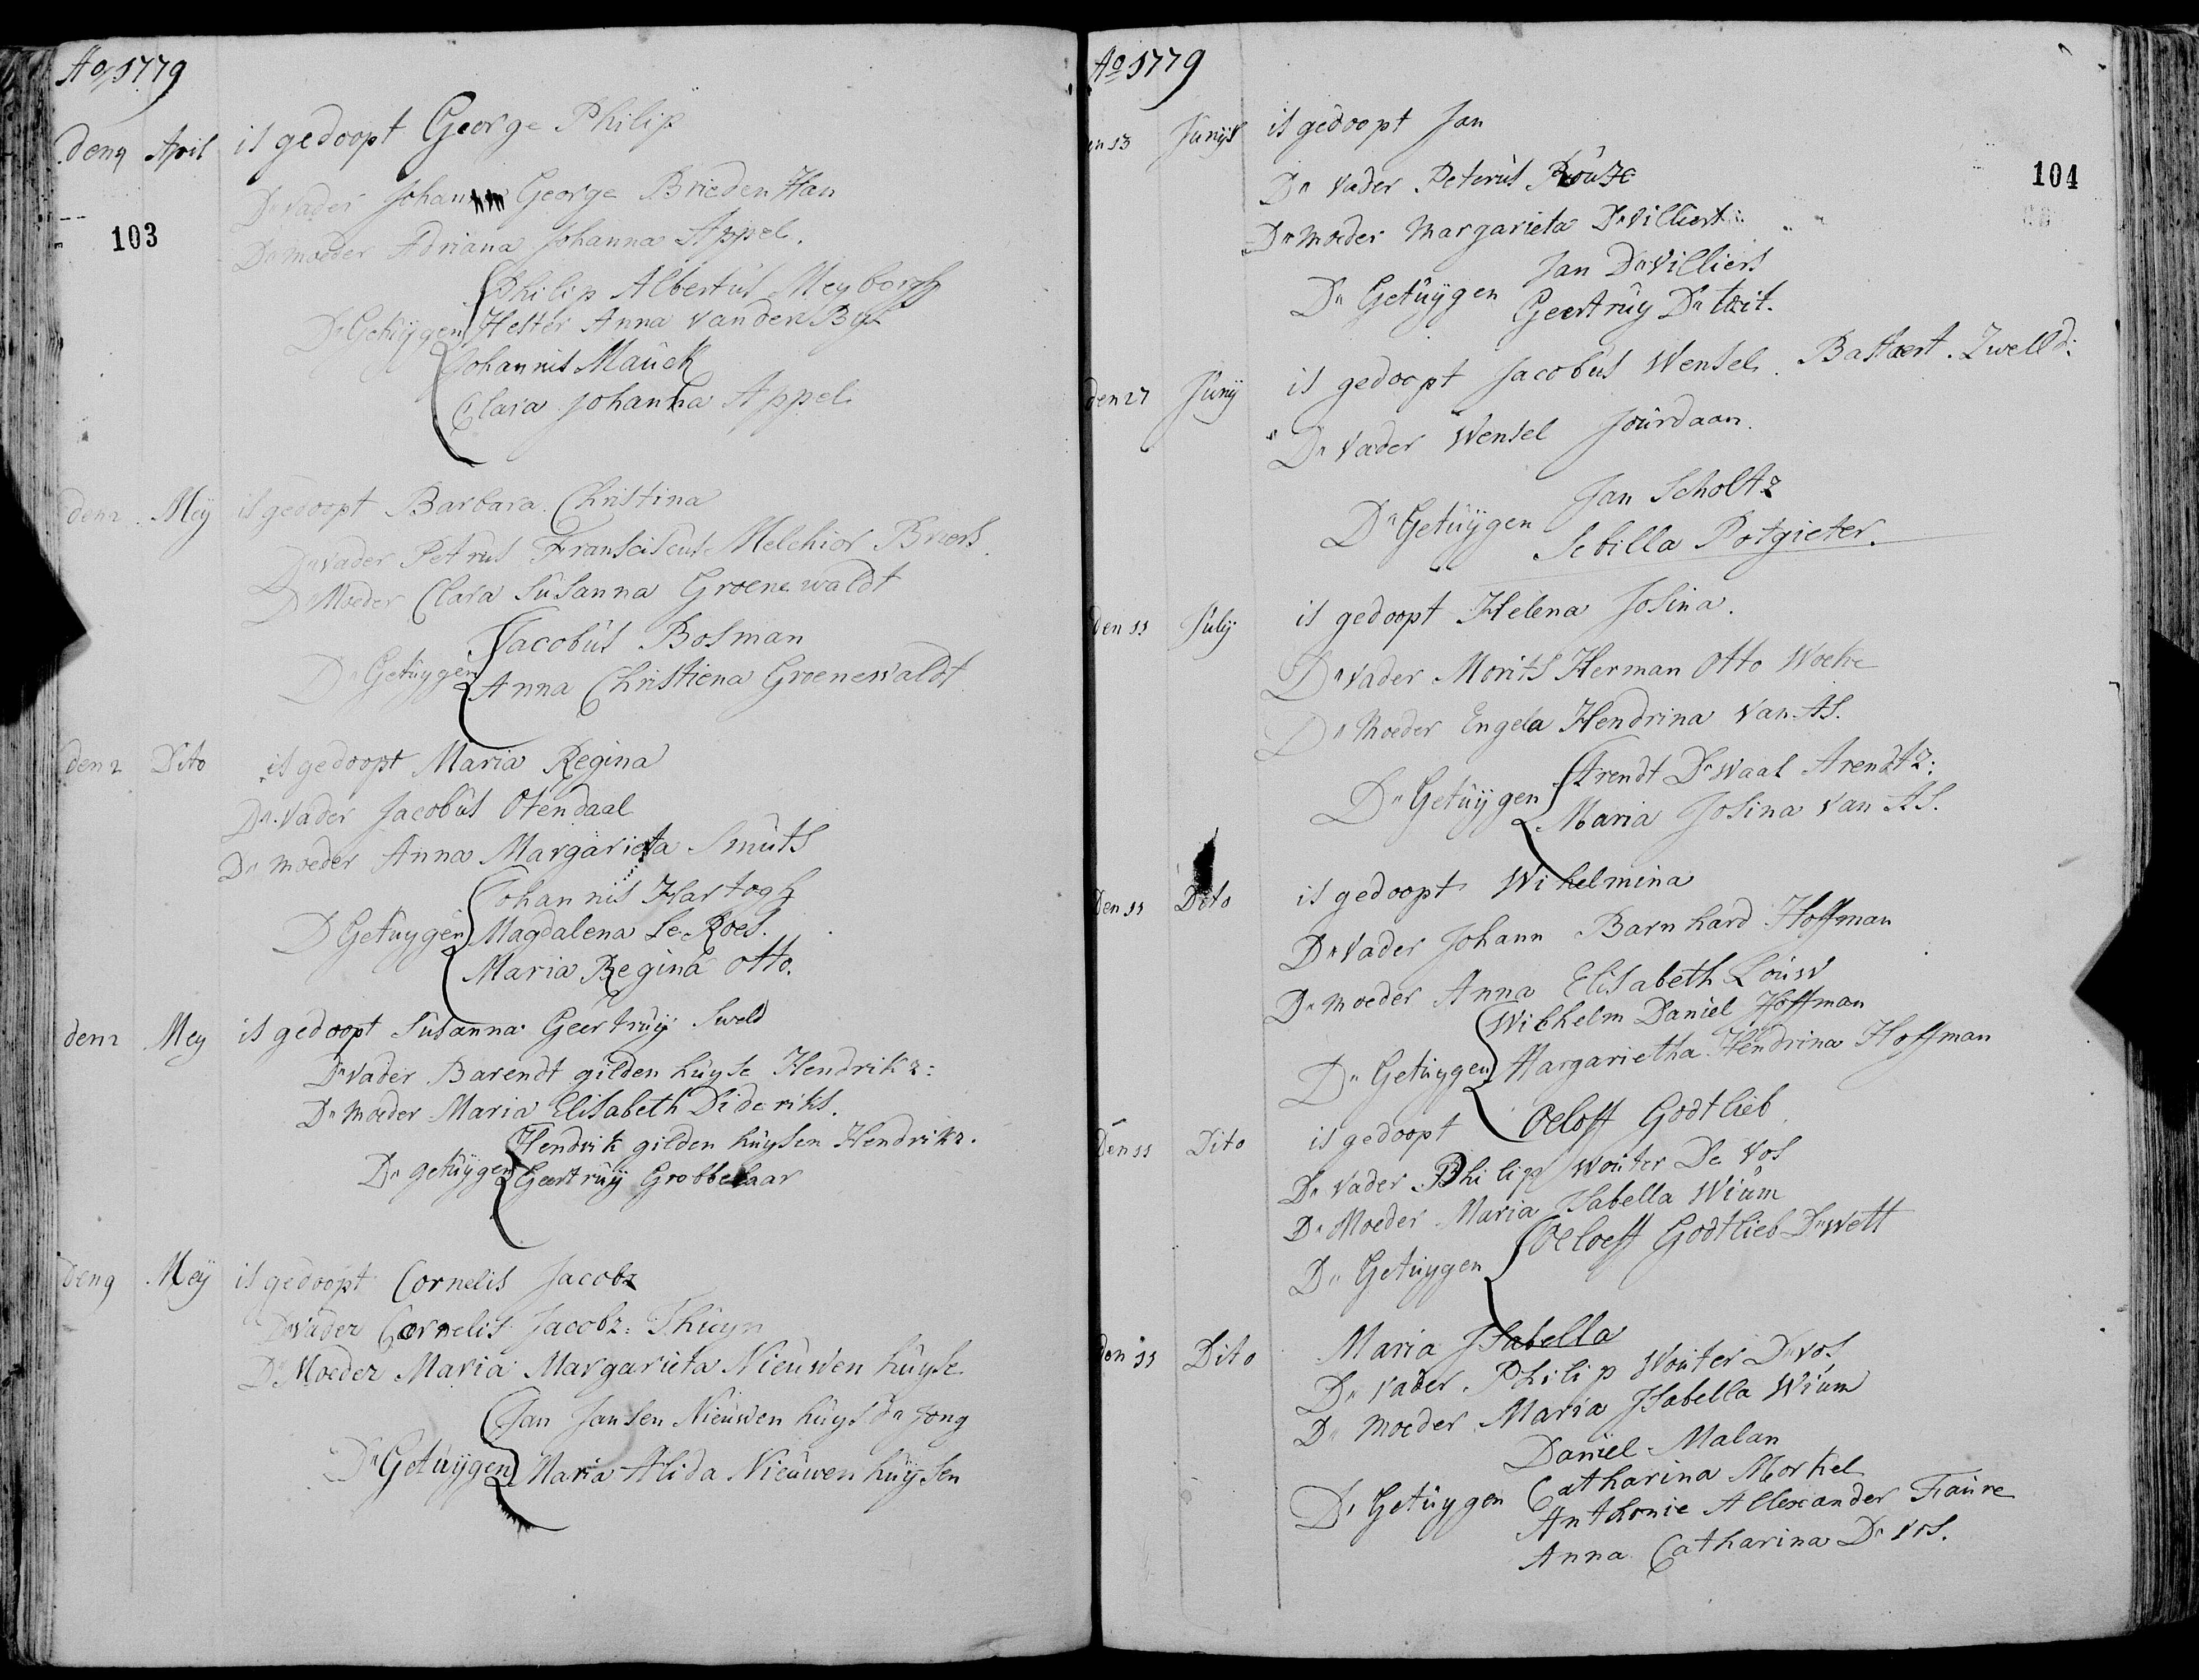 Ao 1779
den 9 April is gedoopt George Philip
Dn Vader Johann George Brieden Han
103
Dn moeder Adriana Johanna Appel.
Philip Albertus Meyborgh
Dn Getuygen Hester Anna van der Byl
Johannis Mauck
Clara Johanna Appel
den 2 Meij is gedoopt Barbara Christina
Dn Vader Petrus Franciscus Melchior Briers
Dn Moeder Clara Susanna Groenewaldt
Jacobus Bosman
Dn Getuygen Anna Christiena Groenewaldt
den 2 Dito is gedoopt Maria Regina
Dn Vader Jacobus Otendaal
Dn moeder Anna Margarieta Smuts
Johannis Hartogh
D Getuygen Magdalena Le Roes.
Maria Regina Otto.
den 2 Mey is gedoopt Susanna Geertruij Sweld
Dn Vader Barendt gilden huyse Hendrikz:
Dn moeder Maria Elisabeth Dideriks.
Hendrik gilden huysen Hendrikz.
Dn getuygen Geertruij Grobbelaar
den 9 Meij is gedoopt Cornelis Jacobz
Dn Vader Cornelis Jacobz: Thuyn
Dn Moeder Maria Margarieta Nieuwen huyse
Jan Jansen Nieuwen huys dn Jong
Dn Getuygen Maria Alida Nieuwen huysen
Ao 1779
en 13 Junij is gedoopt Jan
Dn Vader Peterus Rouze
104
Dn moeder Margarieta Dn Villiers
Jan Dn Villiers
Dn Getuygen Geertruy Dn toit.
den 27 Junij is gedoopt Jacobus Wensel. Bastaert. Zwelld:
Dn Vader Wensel Jourdaan.
Jan Scholtz
Dn Getuygen Sebilla Potgieter.
den 11 Julij is gedoopt Helena Josina.
Dn Vader Morits Herman Otto Woeke
Dn Moeder Engela Hendrina Van As.
Arendt Dn Waal Arendtz:
Dn Getuygen Maria Josina Van As.
Den 11 Dito is gedoopt Wihelmina
Dn Vader Johann Barnhard Hoffman
Dn moeder Anna Elisabeth Louw
Wilhelm Daniel Hoffman
Dn Getuygen Margarietha Hendrina Hoffman
Den 11 Dito is gedoopt Oeloff Godtlieb
Dn Vader Philip Wouter De Vos
Dn Moeder Maria Isabella Wium
Dn Getuygen Oeloeff Godtlieb Dn Wett
den 11 Dito Maria Isabella
Dn Vader Philip Wouter Dn Vos
Dn Moeder Maria Isabella Wium
Daniel Malan
Dn Getuygen Catharina Morkel
Anthonie Allexander Faure
Anna Catharina Dn Vos.